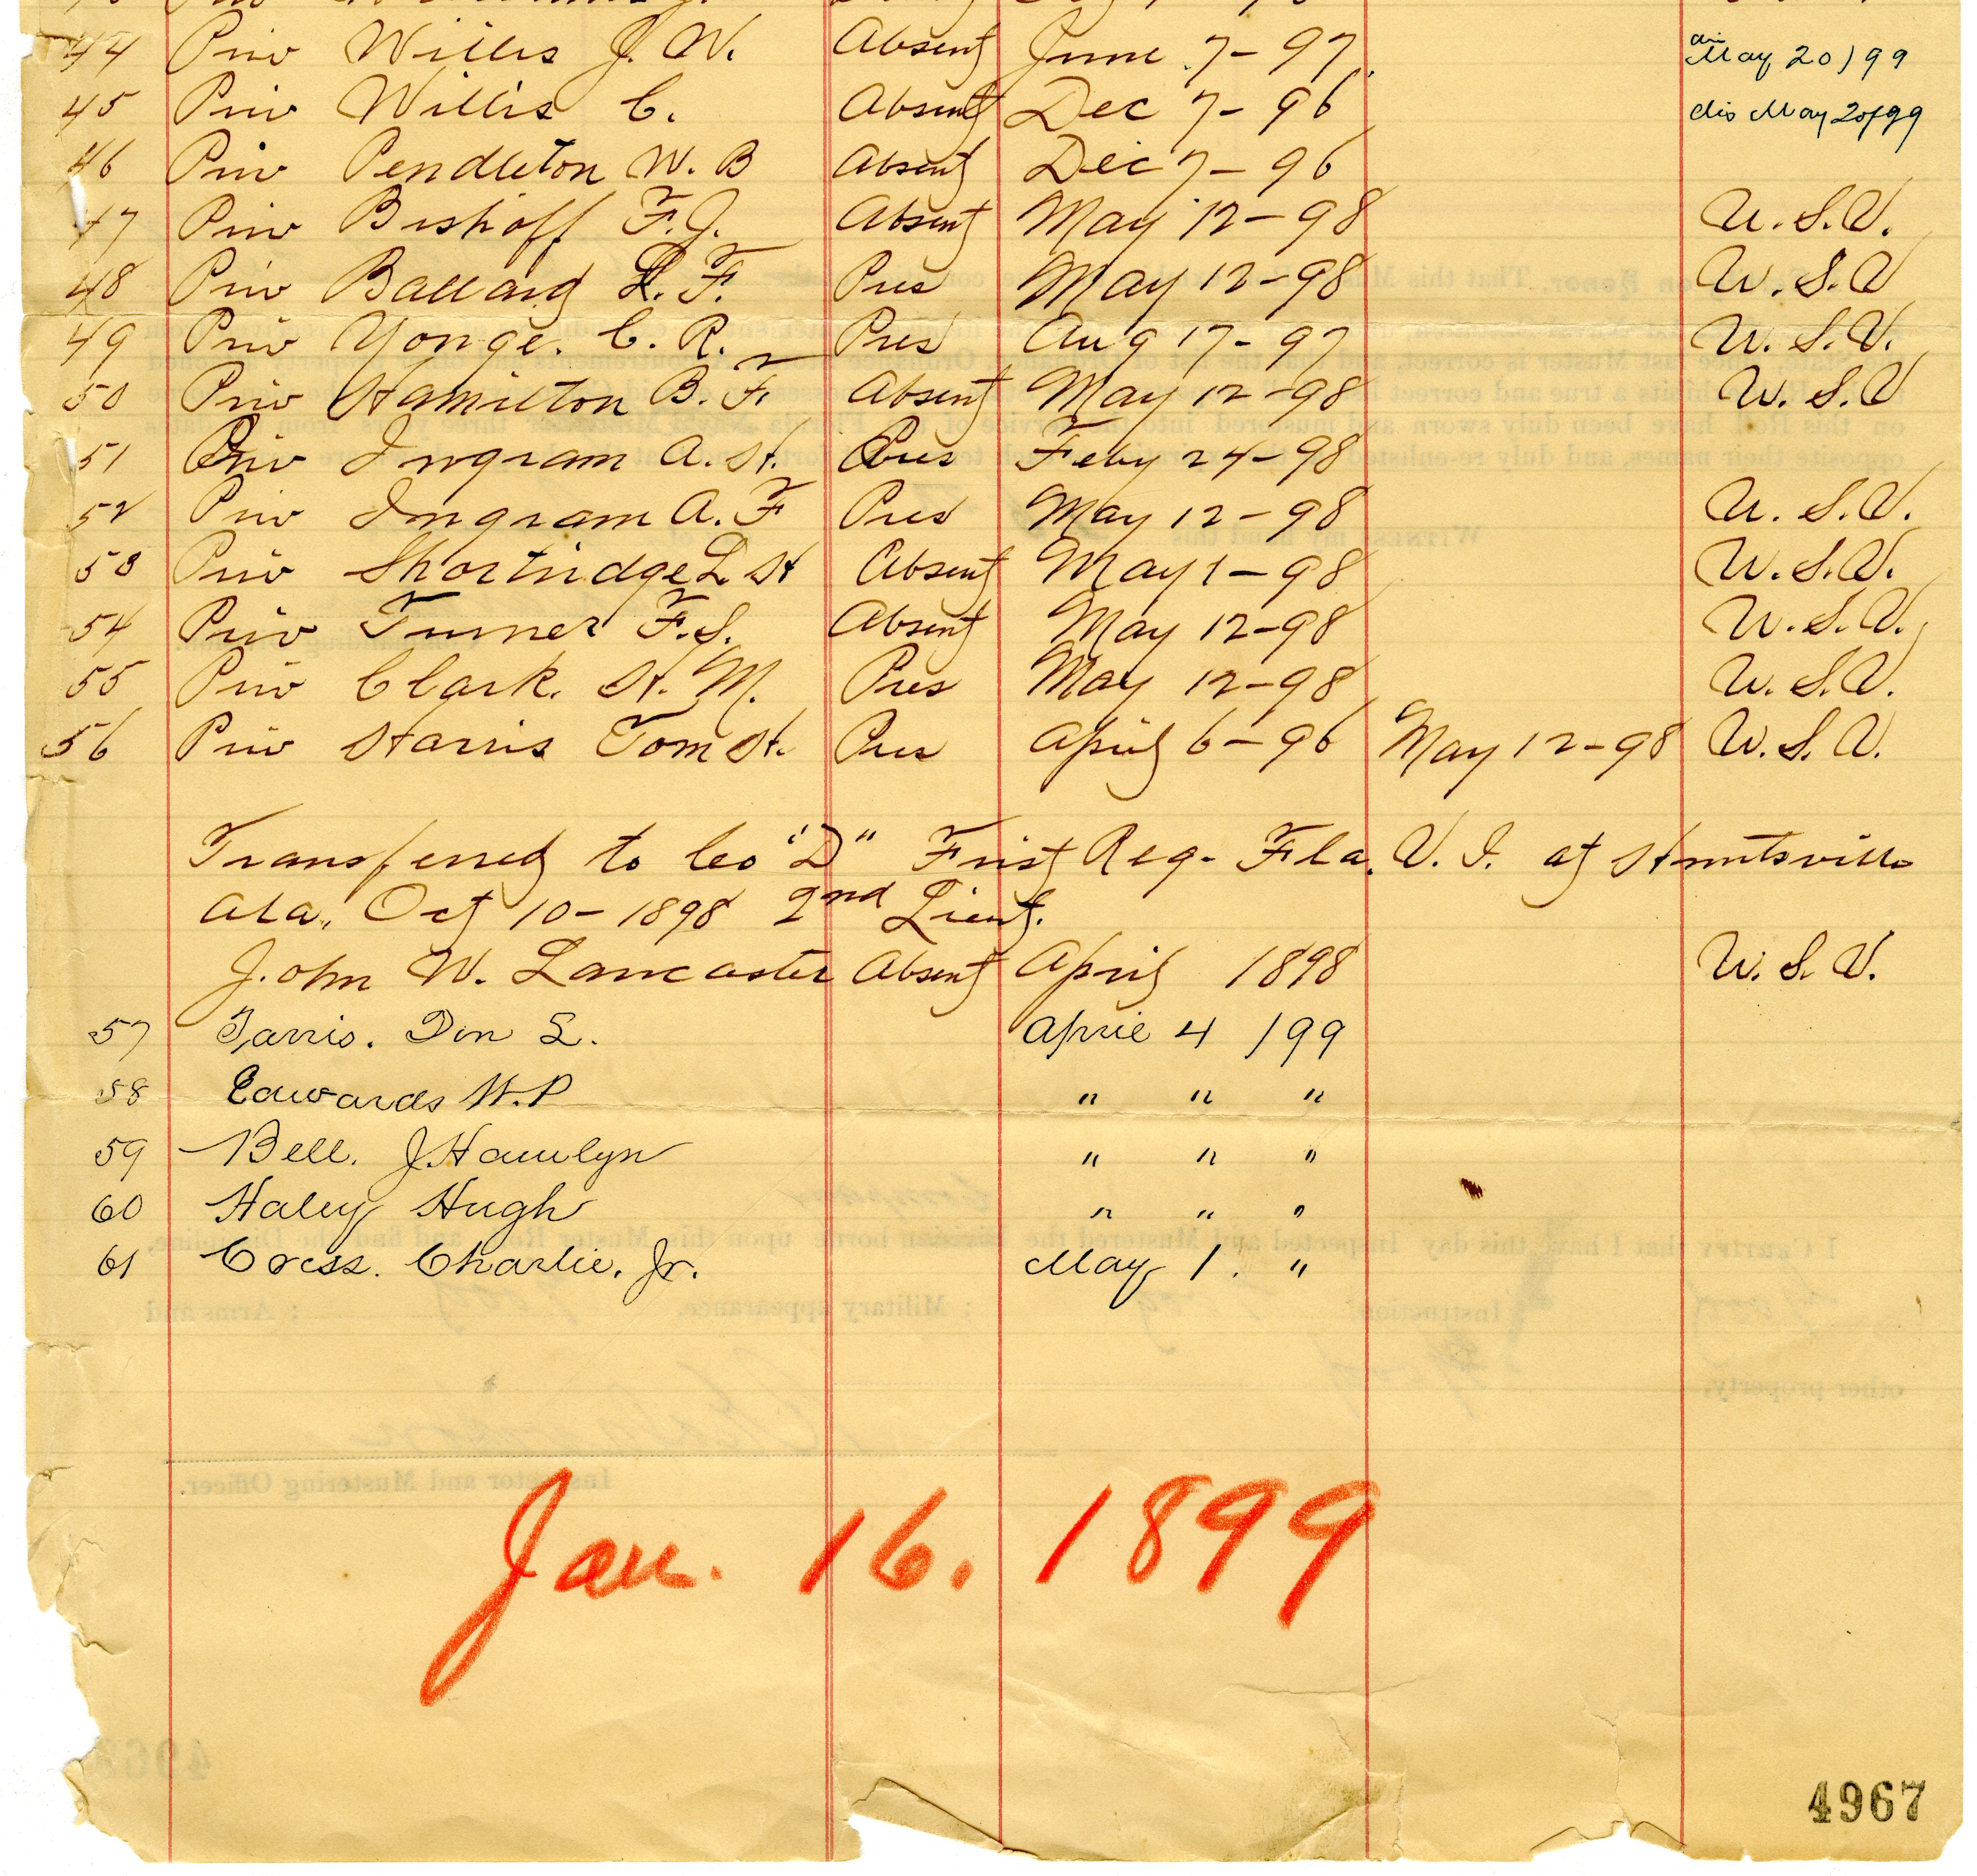 44 Priv Willis J. W. Absent June 7-97 dis May 20/99
45 Priv Willis C. Absent Dec 7-96 dis May 20/99
46 Priv Pendleton W. B Absent Dec 7-96
47 Priv Bishoff F. J. Absent May 12-98 U.S.V.
48 Priv Ballard L. F. Pres May 12-98 U.S.V
49 Priv Yonge. C. R. Pres Aug 17-97 U.S.V.
50 Priv Hamilton B. F. Absent May 12-98 U.S.V
51 Priv Ingram A. H. Pres Feby 24-98
52 Priv Ingram A. F Pres May 12-98 U.S.V.
53 Priv Shortridge L H Absent May 1-98 U.S.V.
54 Priv Turner F. S. Absent May 12-98 U.S.V.
55 Priv Clark. H. M. Pres May 12-98 U.S.V.
56 Priv Harris Tom H. Pres April 6-96 May 12-98 U.S.V.
Transferred to Co "D" First Reg- Fla. V. I. at Huntsville
Ala., Oct 10-1898 2nd Lieut.
John W. Lancaster Absent April 1898 U.S.V.
57 Farris. Don L. April 4 /99
58 Edwards W. P " " "
59 Bell. J. Hamlyn " " "
60 Haley Hugh " " "
61 Cress. Charlie. Jr. May 1. "
Jan. 16. 1899
4967